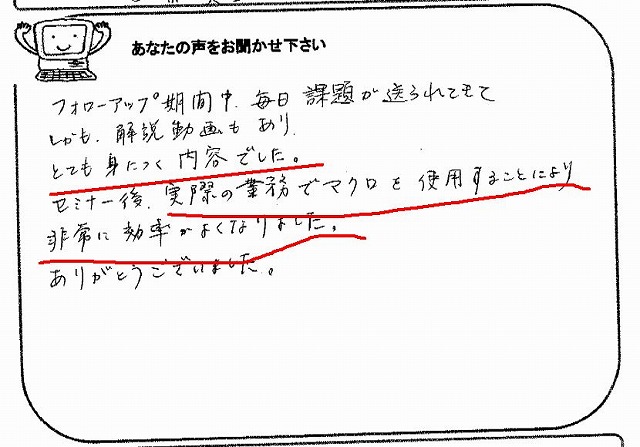 あなたの声をお聞かせ下さい
フォローアップ期間中、毎日 課題が送られてきて
しかも、解説動画もあり、
とても身につく内容でした。
セミナー後、実際の業務でマクロを使用することにより
非常に効率がよくなりました。
ありがとうございました。